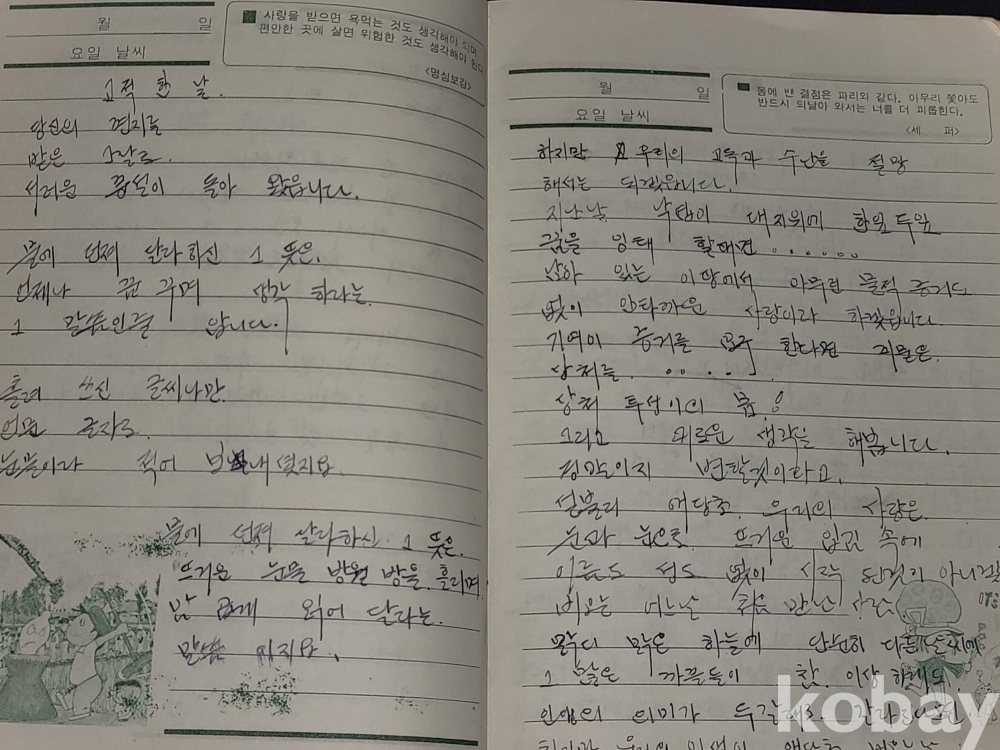 월 일
요일 날씨
사랑을 받으면 욕먹는 것도 생각해야 되며
편안한 곳에 살면 위험한 것도 생각해야 된다
<명심보감>
고적 한 날.
당신의 편지를
받은 그날로.
서러운 꿈설이 돌아 왔읍니다.
물에 던져 달라하신 그 뜻은.
언제나 꿈 꾸며 생각 하라는.
그 말씀인줄 압니다.
흘려 쓰신 글씨나만.
글자로.
눈물이라 적어 보내 셨지요.
물에 던져 달라하신 그 뜻은.
뜨거운 눈물 방울 방울 흘리며
맘 깊게 읽어 달라는.
말씀 이지요.
월 일
요일 날씨
몸에 밴 결점은 파리와 같다. 아무리 쫓아도
반드시 되날아 와서는 너를 더 괴롭힌다.
<세 퍼>
하지만 우리의 고독과 수난을 절망
해서는 되겠읍니다.
지난날 낙엽이 대지위에 한잎 두잎
꿈을 잉태 할때면......
남아 있는 이 땅에서 아무런 물적 증거도
없이 안타까운 사랑이라 하겠읍니다.
기억이 증거를 요구 한다면 괴물은.
상처를.
상처 투성이의 봄!
그리고 괴로운 생각을 해봅니다.
정말이지 변할것이라고.
섣불리 애당초. 우리의 사랑은.
눈과 눈으로. 뜨거운 입김 속에
이름도 성도 없이 시작 된것이 아니겠
비오는 어느날 처음 만난 사람.
맑디 맑은 하늘에 단순히
그 많은 까끌들이 참. 이상 해도.
인생의 의미가
하지만 우리의 인생이 애당초
kobay